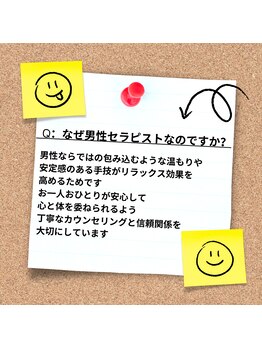 Q：なぜ男性セラピストなのですか?
男性ならではの包み込むような温もりや
安定感のある手技がリラックス効果を
高めるためです
お一人おひとりが安心して
心と体を委ねられるよう
丁寧なカウンセリングと信頼関係を
大切にしています